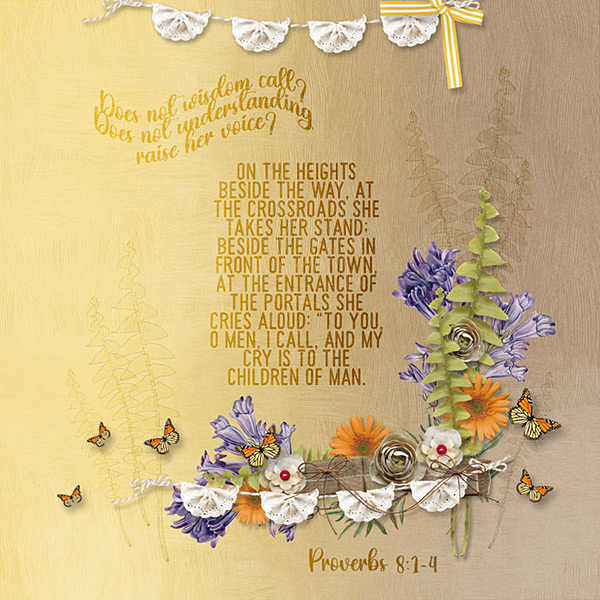 Does not wisdom call?
Does not understanding
raise her voice?
ON THE HEIGHTS
BESIDE THE WAY, AT
THE CROSSROADS SHE
TAKES HER STAND;
BESIDE THE GATES IN
FRONT OF THE TOWN,
AT THE ENTRANCE OF
THE PORTALS SHE
CRIES ALOUD: "TO YOU,
O MEN, I CALL, AND MY
CRY IS TO THE
CHILDREN OF MAN.
Proverbs 8:1-4